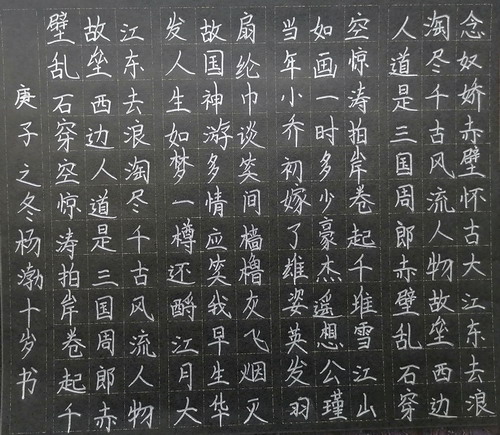 念奴娇赤壁怀古大江东去浪
淘尽千古风流人物故垒西边
人道是三国周郎赤壁乱石穿
空惊涛拍岸卷起千堆雪江山
如画一时多少豪杰遥想公瑾
当年小乔初嫁了雄姿英发羽
扇纶巾谈笑间樯橹灰飞烟灭
故国神游多情应笑我早生华
发人生如梦一樽还酹江月大
江东去浪淘尽千古风流人物
故垒西边人道是三国周郎赤
壁乱石穿空惊涛拍岸卷起千
庚子之冬杨渤十岁书